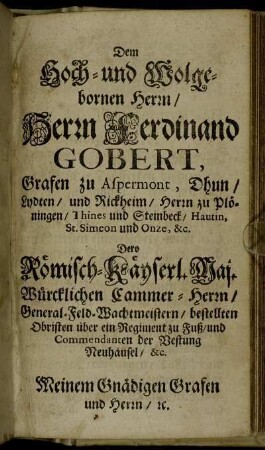 Dem
Hoch- und Wolge-
bornen Herrn/
Herrn Ferdinand
GOBERT,
Grafen zu Aspermont, Dhun/
Lydten/ und Rickheim/ Herrn zu Plö-
ningen/ Thines und Steinbeck/ Hautin,
St. Simeon und Onze, &c.
Dero
Römisch-Käyserl. Maj.
Würcklichen Cammer-Herrn/
General-Feld-Wachtmeistern/ bestellten
Obristen über ein Regiment zu Fuß/ und
Commendanten der Vestung
Neuhäusel/ &c.
Meinem Gnädigen Grafen
und Herrn/ ꝛc.